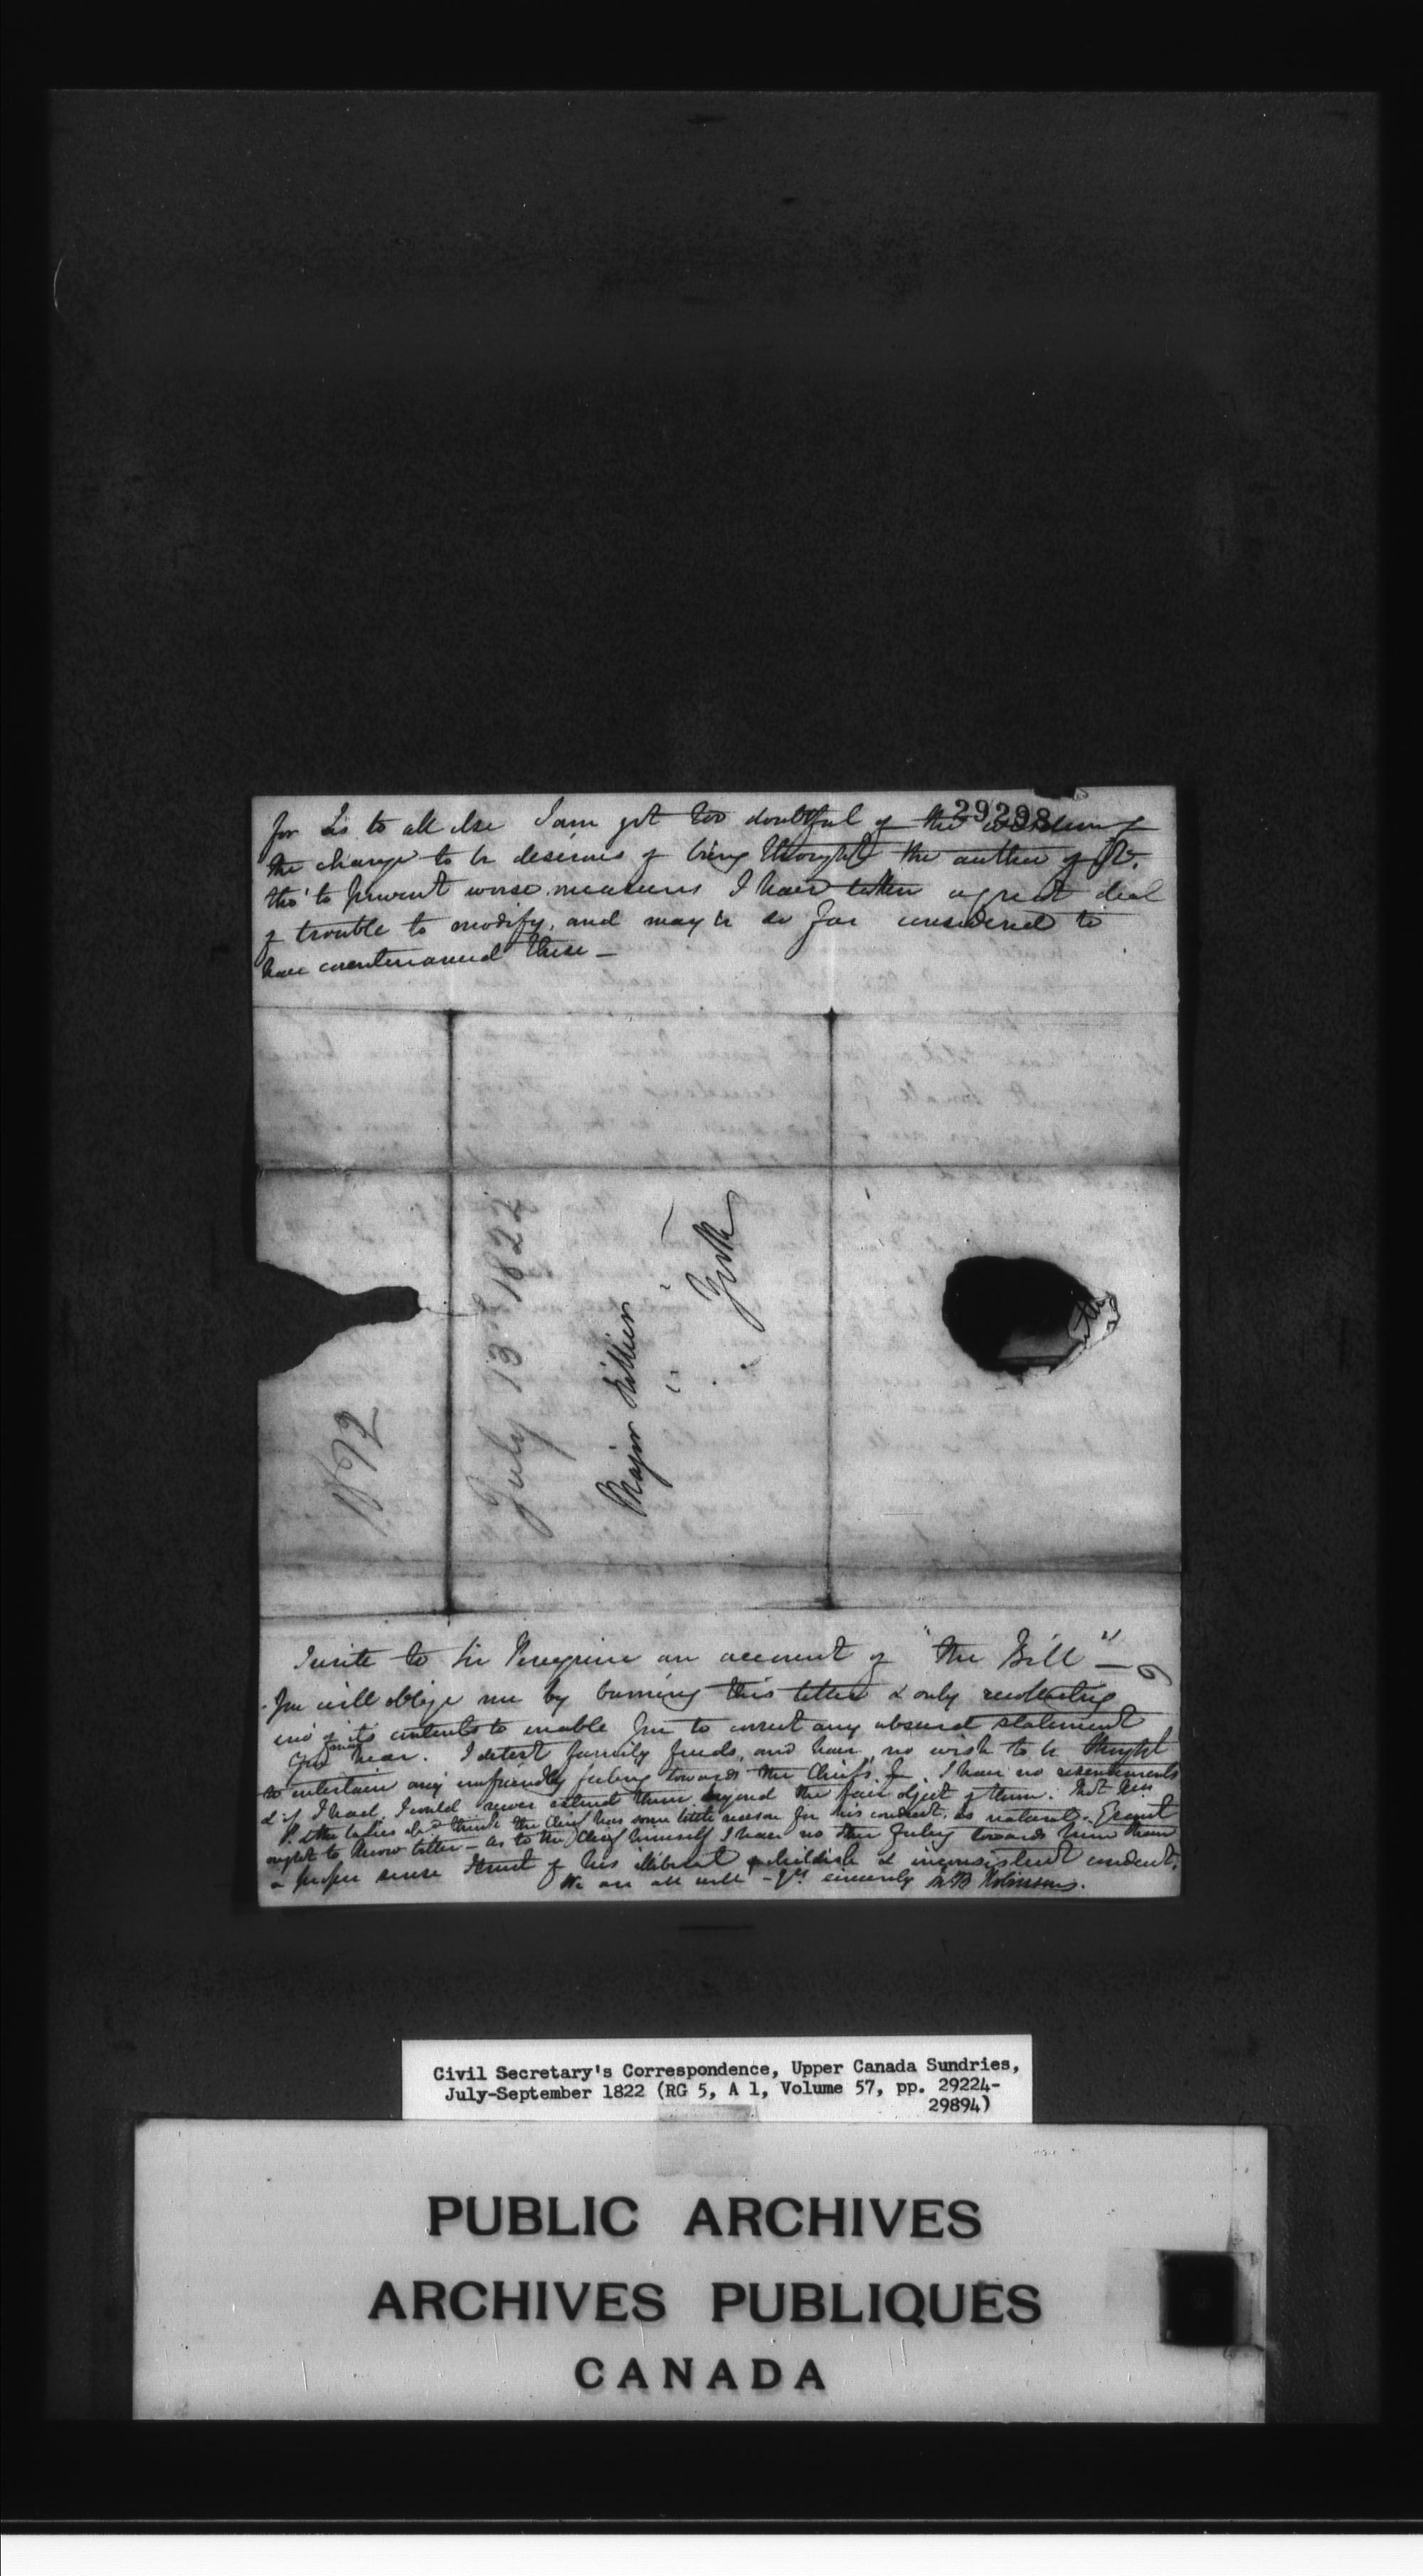 29298
for as to all else I am yet too doubtful of the wisdom of
the change to be desirous of being thought the author of it,
tho' to prevent worse measures I have taken a great deal
of trouble to modify, and may be so far considered to
have countenanced these —
1892
July 13th 1822
Major Hillier
York
I write to Sir Peregrine an account of "the Bill" —
You will oblige me by burning this letter & only recollecting
eno' of its contents to enable you to correct any absurd statement
you may hear. I detest family feuds, and have no wish to be thought
to entertain any unfriendly feeling towards the Chief's I have no resentments
& if I had, I would never extend them beyond the fair object of them. That Mrs
P. & the ladies shd think the Chief has some little reason for his conduct, is natural.
ought to know better — as to the Chief himself I have no other feeling towards him than
a proper sense of his illiberal childish & inconsistent conduct.
We are all well — Yrs sincerely J. B. Robinson.
Civil Secretary's Correspondence, Upper Canada Sundries,
July-September 1822 (RG 5, A 1, Volume 57, pp. 29224-
29894)
PUBLIC ARCHIVES
ARCHIVES PUBLIQUES
CANADA